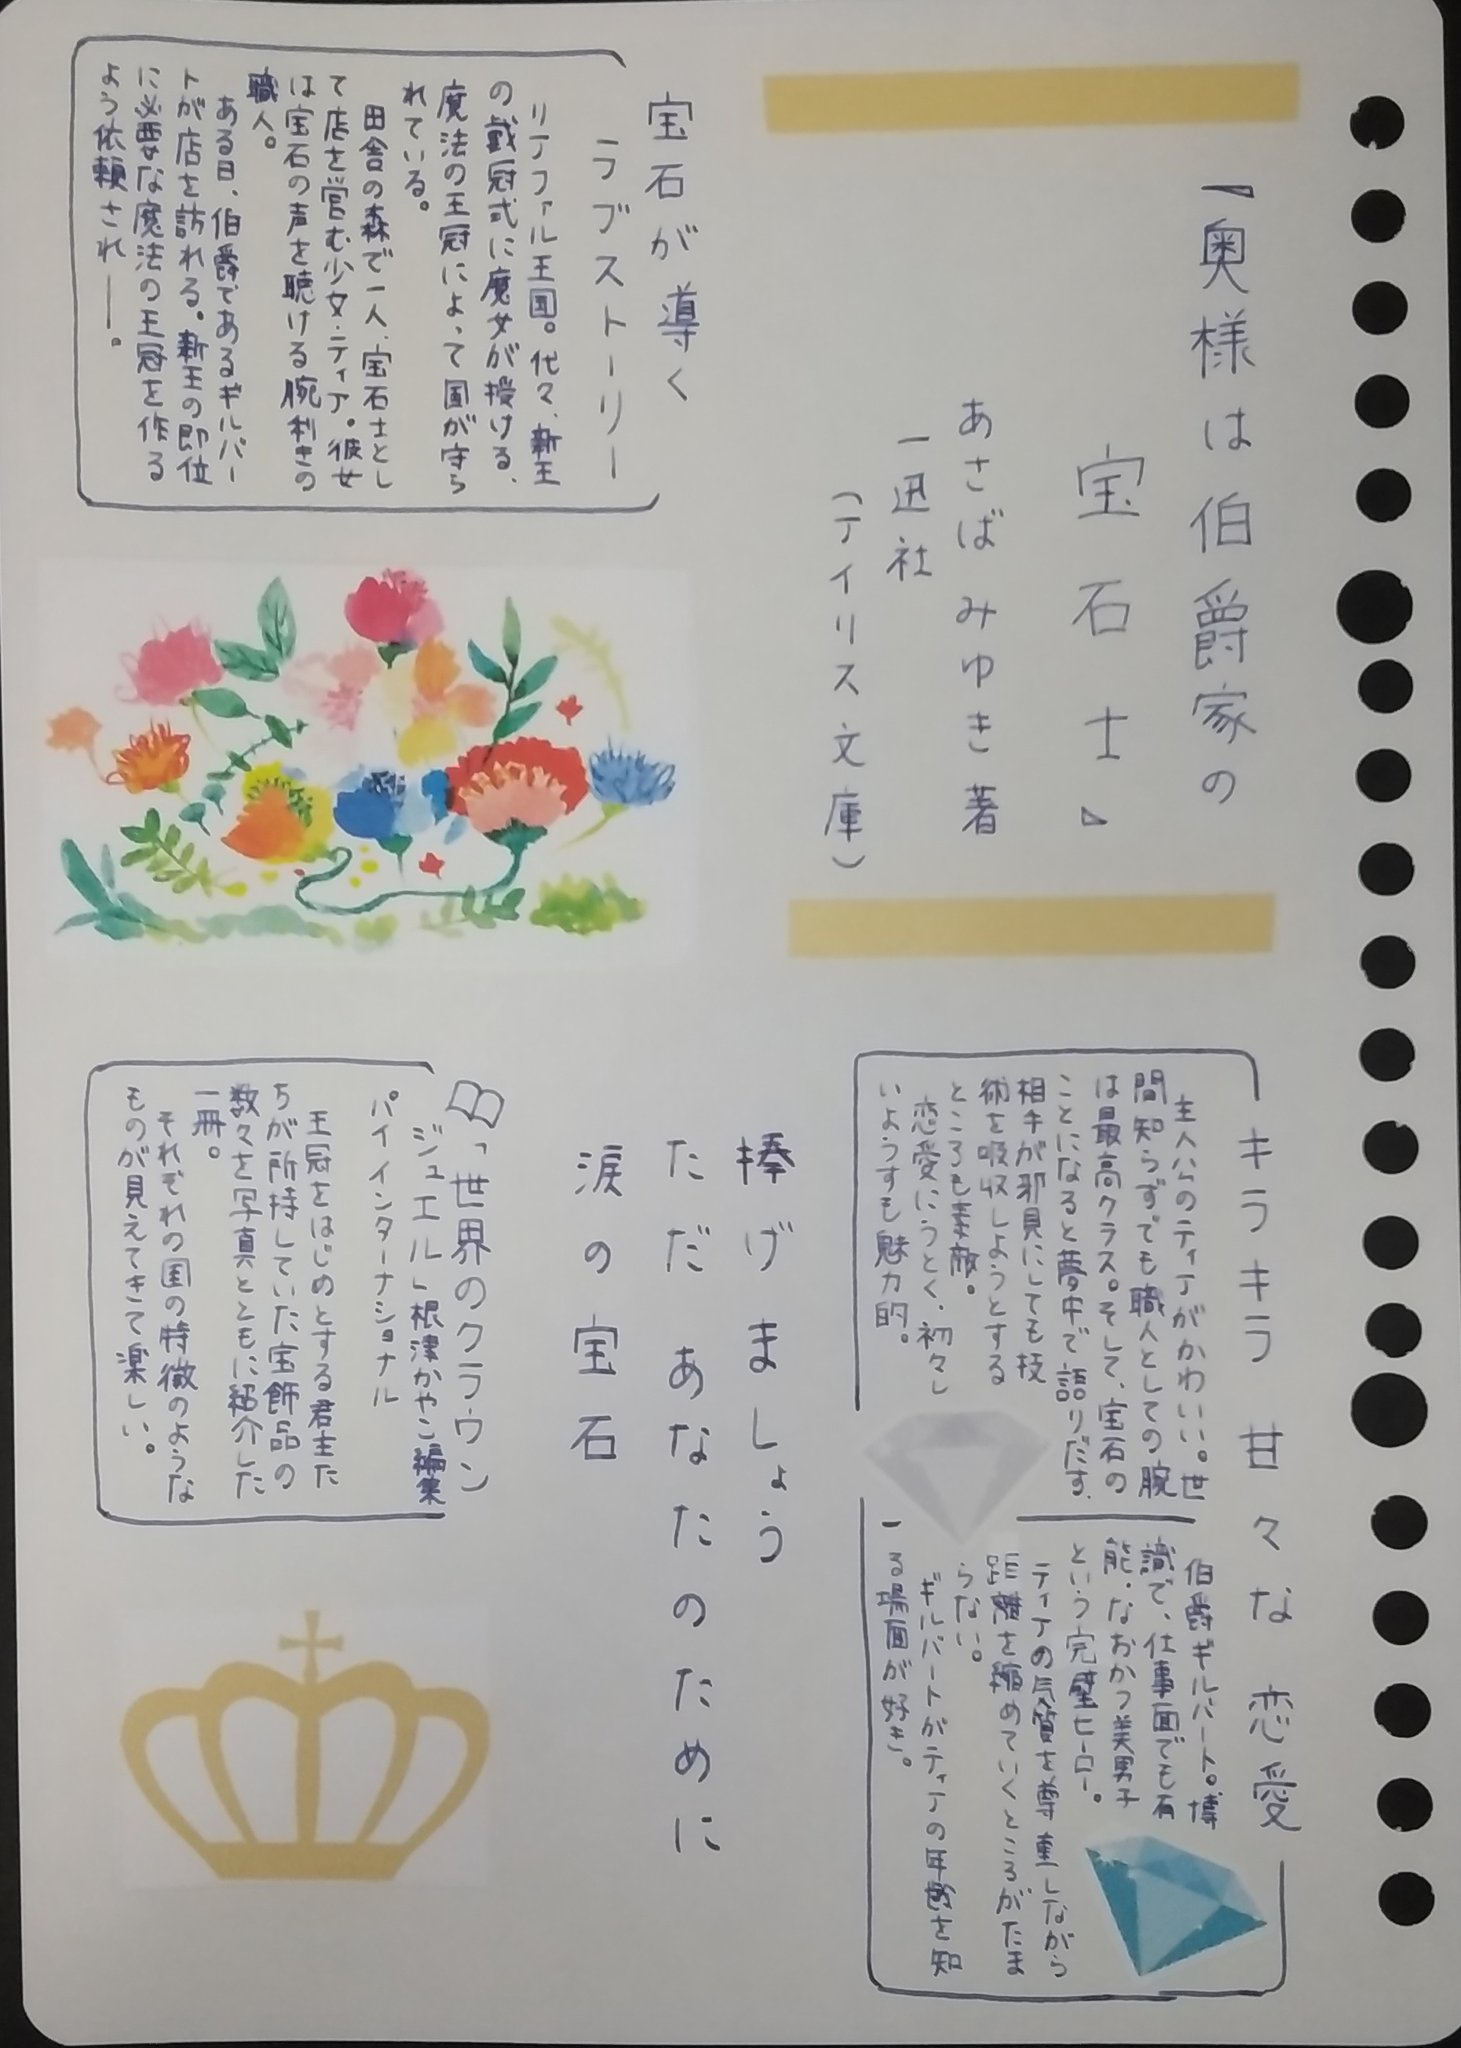 『奥様は伯爵家の
宝石士』
あさばみゆき著
一迅社
（アイリス文庫）
宝石が導く
ラブストーリー
リアファル王国。代々、新王
の戴冠式に魔女が授ける、
魔法の王冠によって国が守ら
れている。
田舎の森で一人、宝石士とし
て店を営む少女・ティア。彼女
は宝石の声を聴ける腕利きの
職人。
ある日、伯爵であるギルバー
トが店を訪れる。新王の即位
に必要な魔法の王冠を作る
よう依頼され――。
キラキラ 甘々な恋愛
主人公のティアがかわいい。世
間知らずでも職人としての腕
は最高クラス。そして、宝石の
ことになると夢中で語りだす。
相手が邪見にしても技
術を吸収しようとする
ところも素敵。
恋愛にうとく、初々し
いようすも魅力的。
伯爵ギルバート。博
識で、仕事面でも有
能。なおかつ美男子
という完璧ヒーロー。
ティアの気質を尊重しながら
距離を縮めていくところがたま
らない。
ギルバートがティアの年齢を知
る場面が好き。
捧げましょう
ただ あなたのために
涙の宝石
「世界のクラウン
ジュエル」根津かやこ編集
パイ インターナショナル
王冠をはじめとする君主た
ちが所持していた宝飾品の
数々を写真とともに紹介した
一冊。
それぞれの国の特徴のような
ものが見えてきて楽しい。